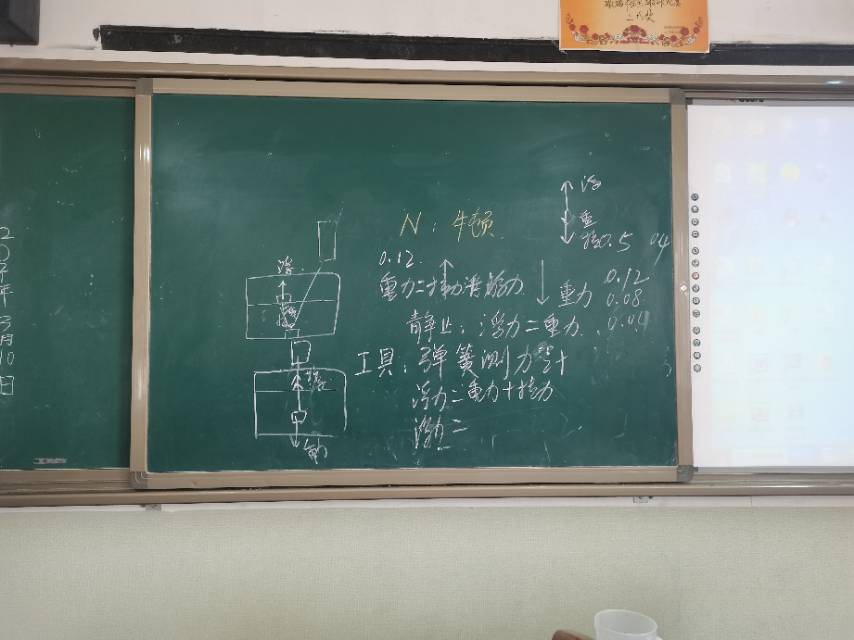 二等奖
2
0
年
3
月
10
日
N：牛顿
浮
重
拉0.5 0.4
浮
0.12
重力=
浮力
重力 0.12
0.08
0.04
静止：浮力=重力
工具：弹簧测力计
浮力=重力+拉力
浮力=